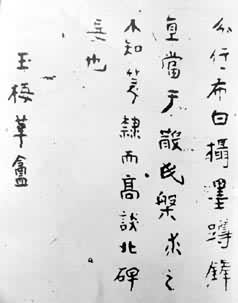 分行布白攝墨蹲鋒
直當于散氏槃求之
不知篆隸而高談北碑
妄也
玉梅華盦